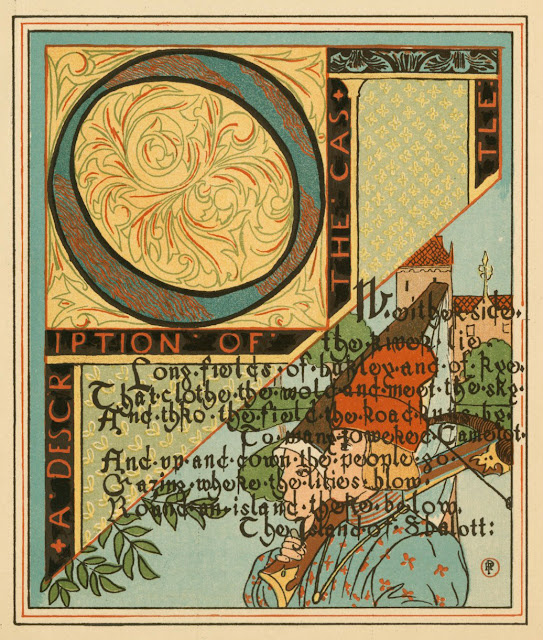 + A DESCR
IPTION · OF ·
THE · CAS +
TLE
O
N · either · side ·
the · river · lie
Long · fields · of · barley · and · of · rye ·
That · clothe · the · wold · and · meet · the · sky ·
And · thro · the · field · the · road · runs · by ·
To · many · towered · Camelot ·
And · up · and · down · the · people · go ·
Gazing · where · the · lilies · blow ·
Round · an · island · there · below ·
The · Island · of · Shalott: